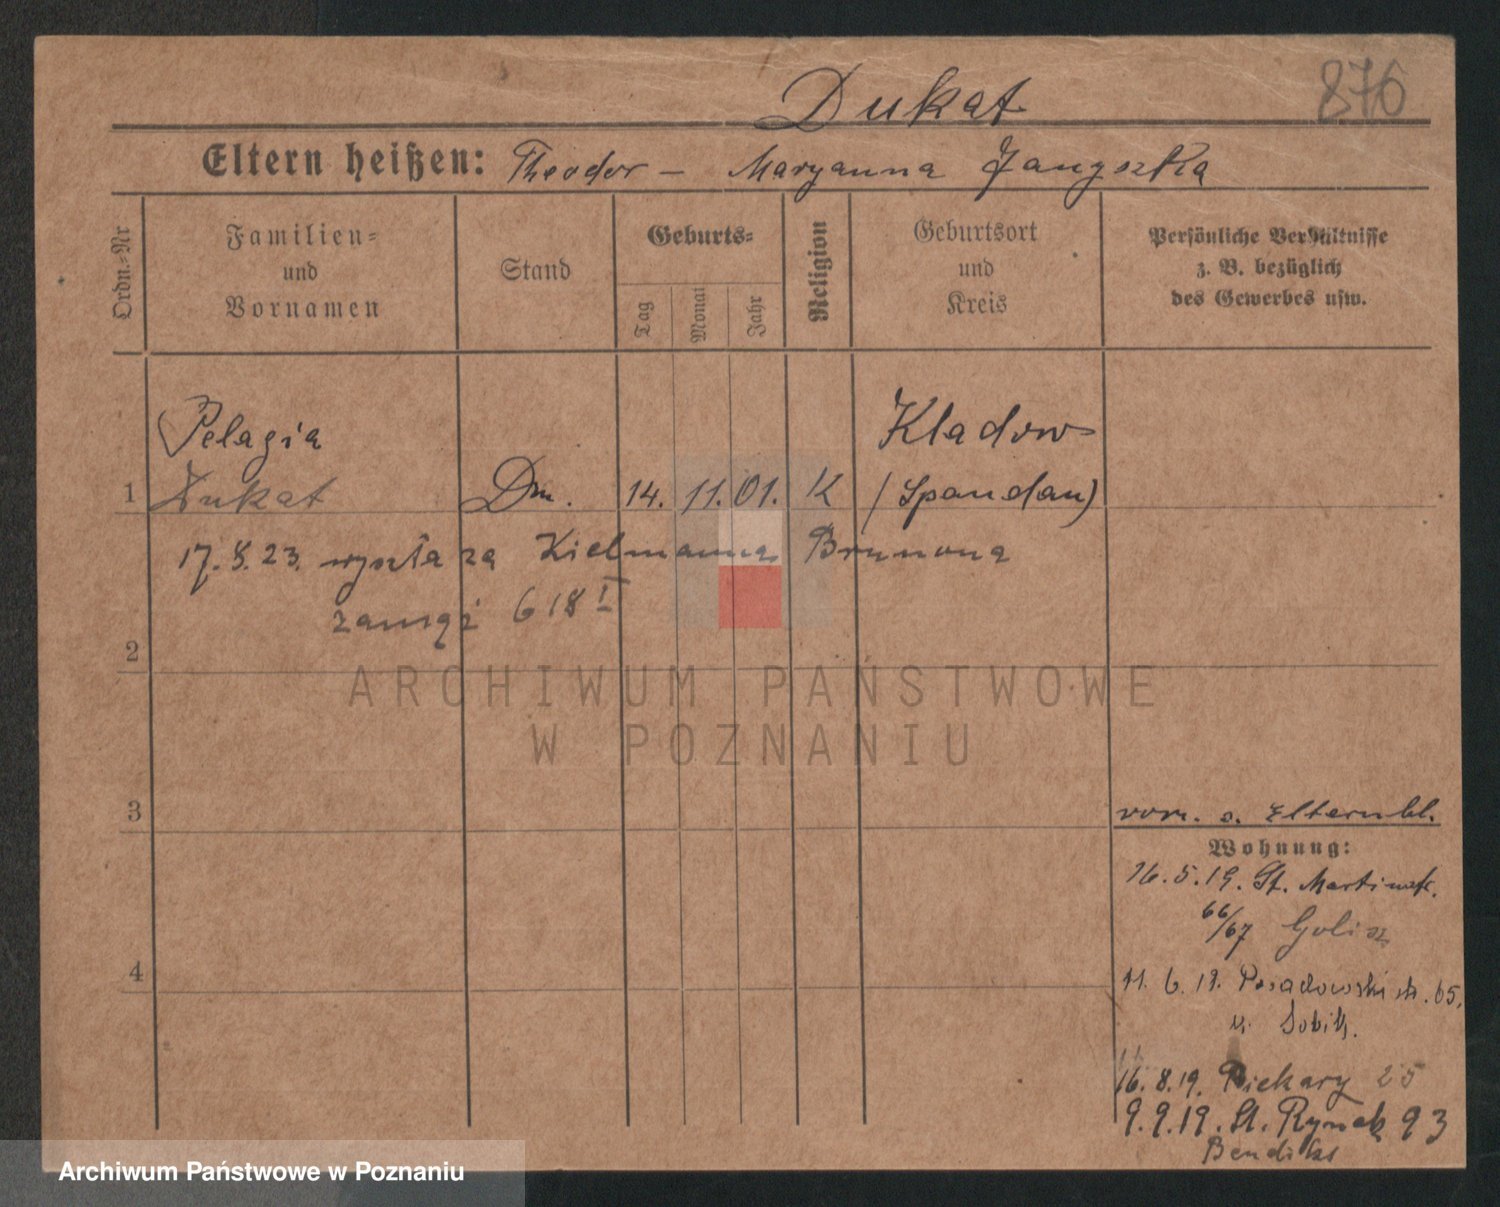 Dukat 876
Eltern heißen: Theodor – Maryanna
Ordn.-Nr
Familien-
und
Vornamen
Stand
Geburts-
Tag
Monat
Jahr
Religion
Geburtsort
und
Kreis
Persönliche Verhältnisse
z. B. bezüglich
des Gewerbes usw.
Pelagia Kladow
1 Dukat Dm. 14. 11. 01. K (Spandau)
17. 8. 23. wyszła za Kielmanna Brunona
zamąż 618 I
2
3
vorm. s. Elternbl.
Wohnung:
16. 5. 19. St. Martinstr.
66/67
4
11. 6. 19. Posadowskistr. 65,
16. 8. 19. Piekary 25
9. 9. 19. St. Rynek 93
ARCHIWUM PAŃSTWOWE
W POZNANIU
Archiwum Państwowe w Poznaniu